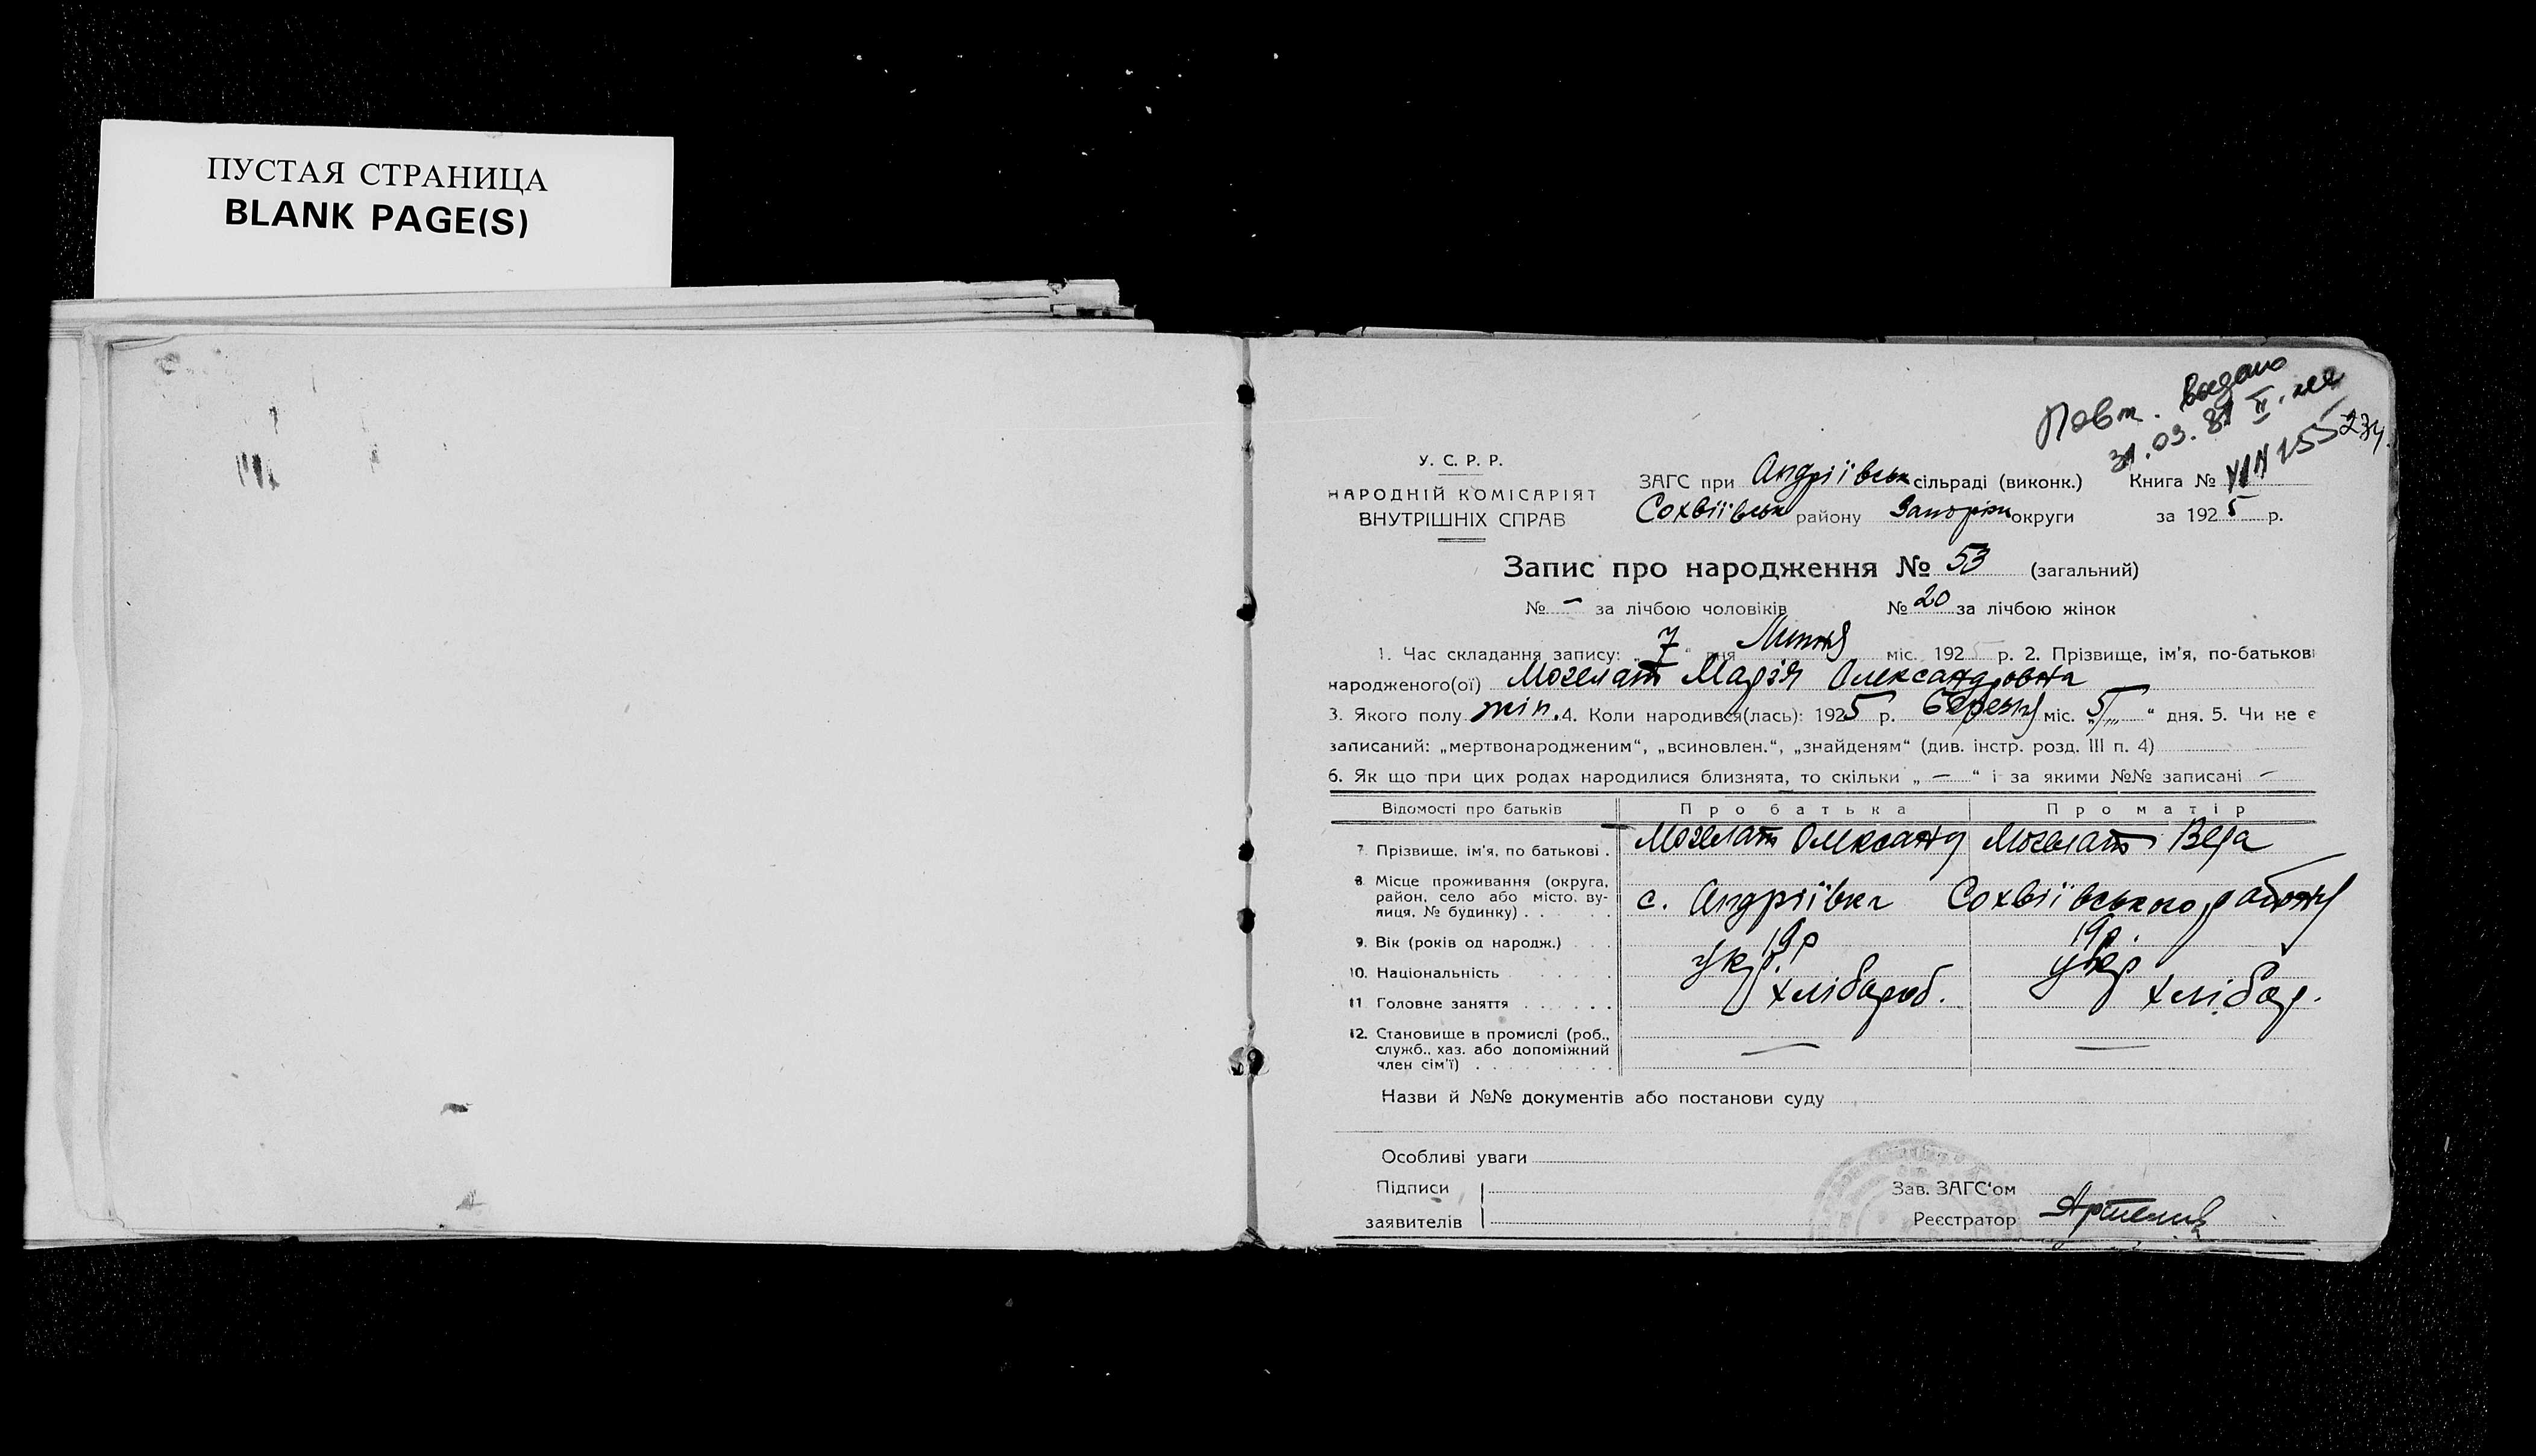 ПУСТАЯ СТРАНИЦА
BLANK PAGE(S)
Повт. видано
31.03.81 II
234
У. С. Р. Р.
НАРОДНІЙ КОМІСАРІЯТ
ВНУТРІШНІХ СПРАВ
ЗАГС при Андріївськ сільраді (виконк.) Книга №
Сохвіївськ району Запоріж округи за 1925 р.
Запис про народження № 53 (загальний)
№ – за лічбою чоловіків № 20 за лічбою жінок
1. Час складання запису: „7“ дня Липня міс. 1925 р. 2. Прізвище, ім'я, по-батькові
народженого(ої) Могелат Марія Олександровна
3. Якого полу жін. 4. Коли народився(лась): 1925 р. березня міс. „5“ дня. 5. Чи не є
записаний: „мертвонародженим“, „всиновлен.“, „знайденям“ (див. інстр. розд. III п. 4)
6. Як що при цих родах народилися близнята, то скільки „ – “ і за якими №№ записані –
Відомості про батьків Про батька Про матір
7. Прізвище, ім'я, по батькові . Могелат Олександ Могелат Вера
8. Місце проживання (округа,
район, село або місто, ву-
лиця, № будинку) . . . с. Андріївка Сохвіївського району
9. Вік (років од народж.) . . . 19 р 19 р.
10. Національність . . . . . укр. укр
11. Головне заняття . . . . . . хлібороб. хлібор.
12. Становище в промислі (роб.,
служб., хаз. або допоміжний
член сім'ї) . . . . . . . . — —
Назви й №№ документів або постанови суду
Особливі уваги
Підписи Зав. ЗАГС'ом
заявителів Реєстратор